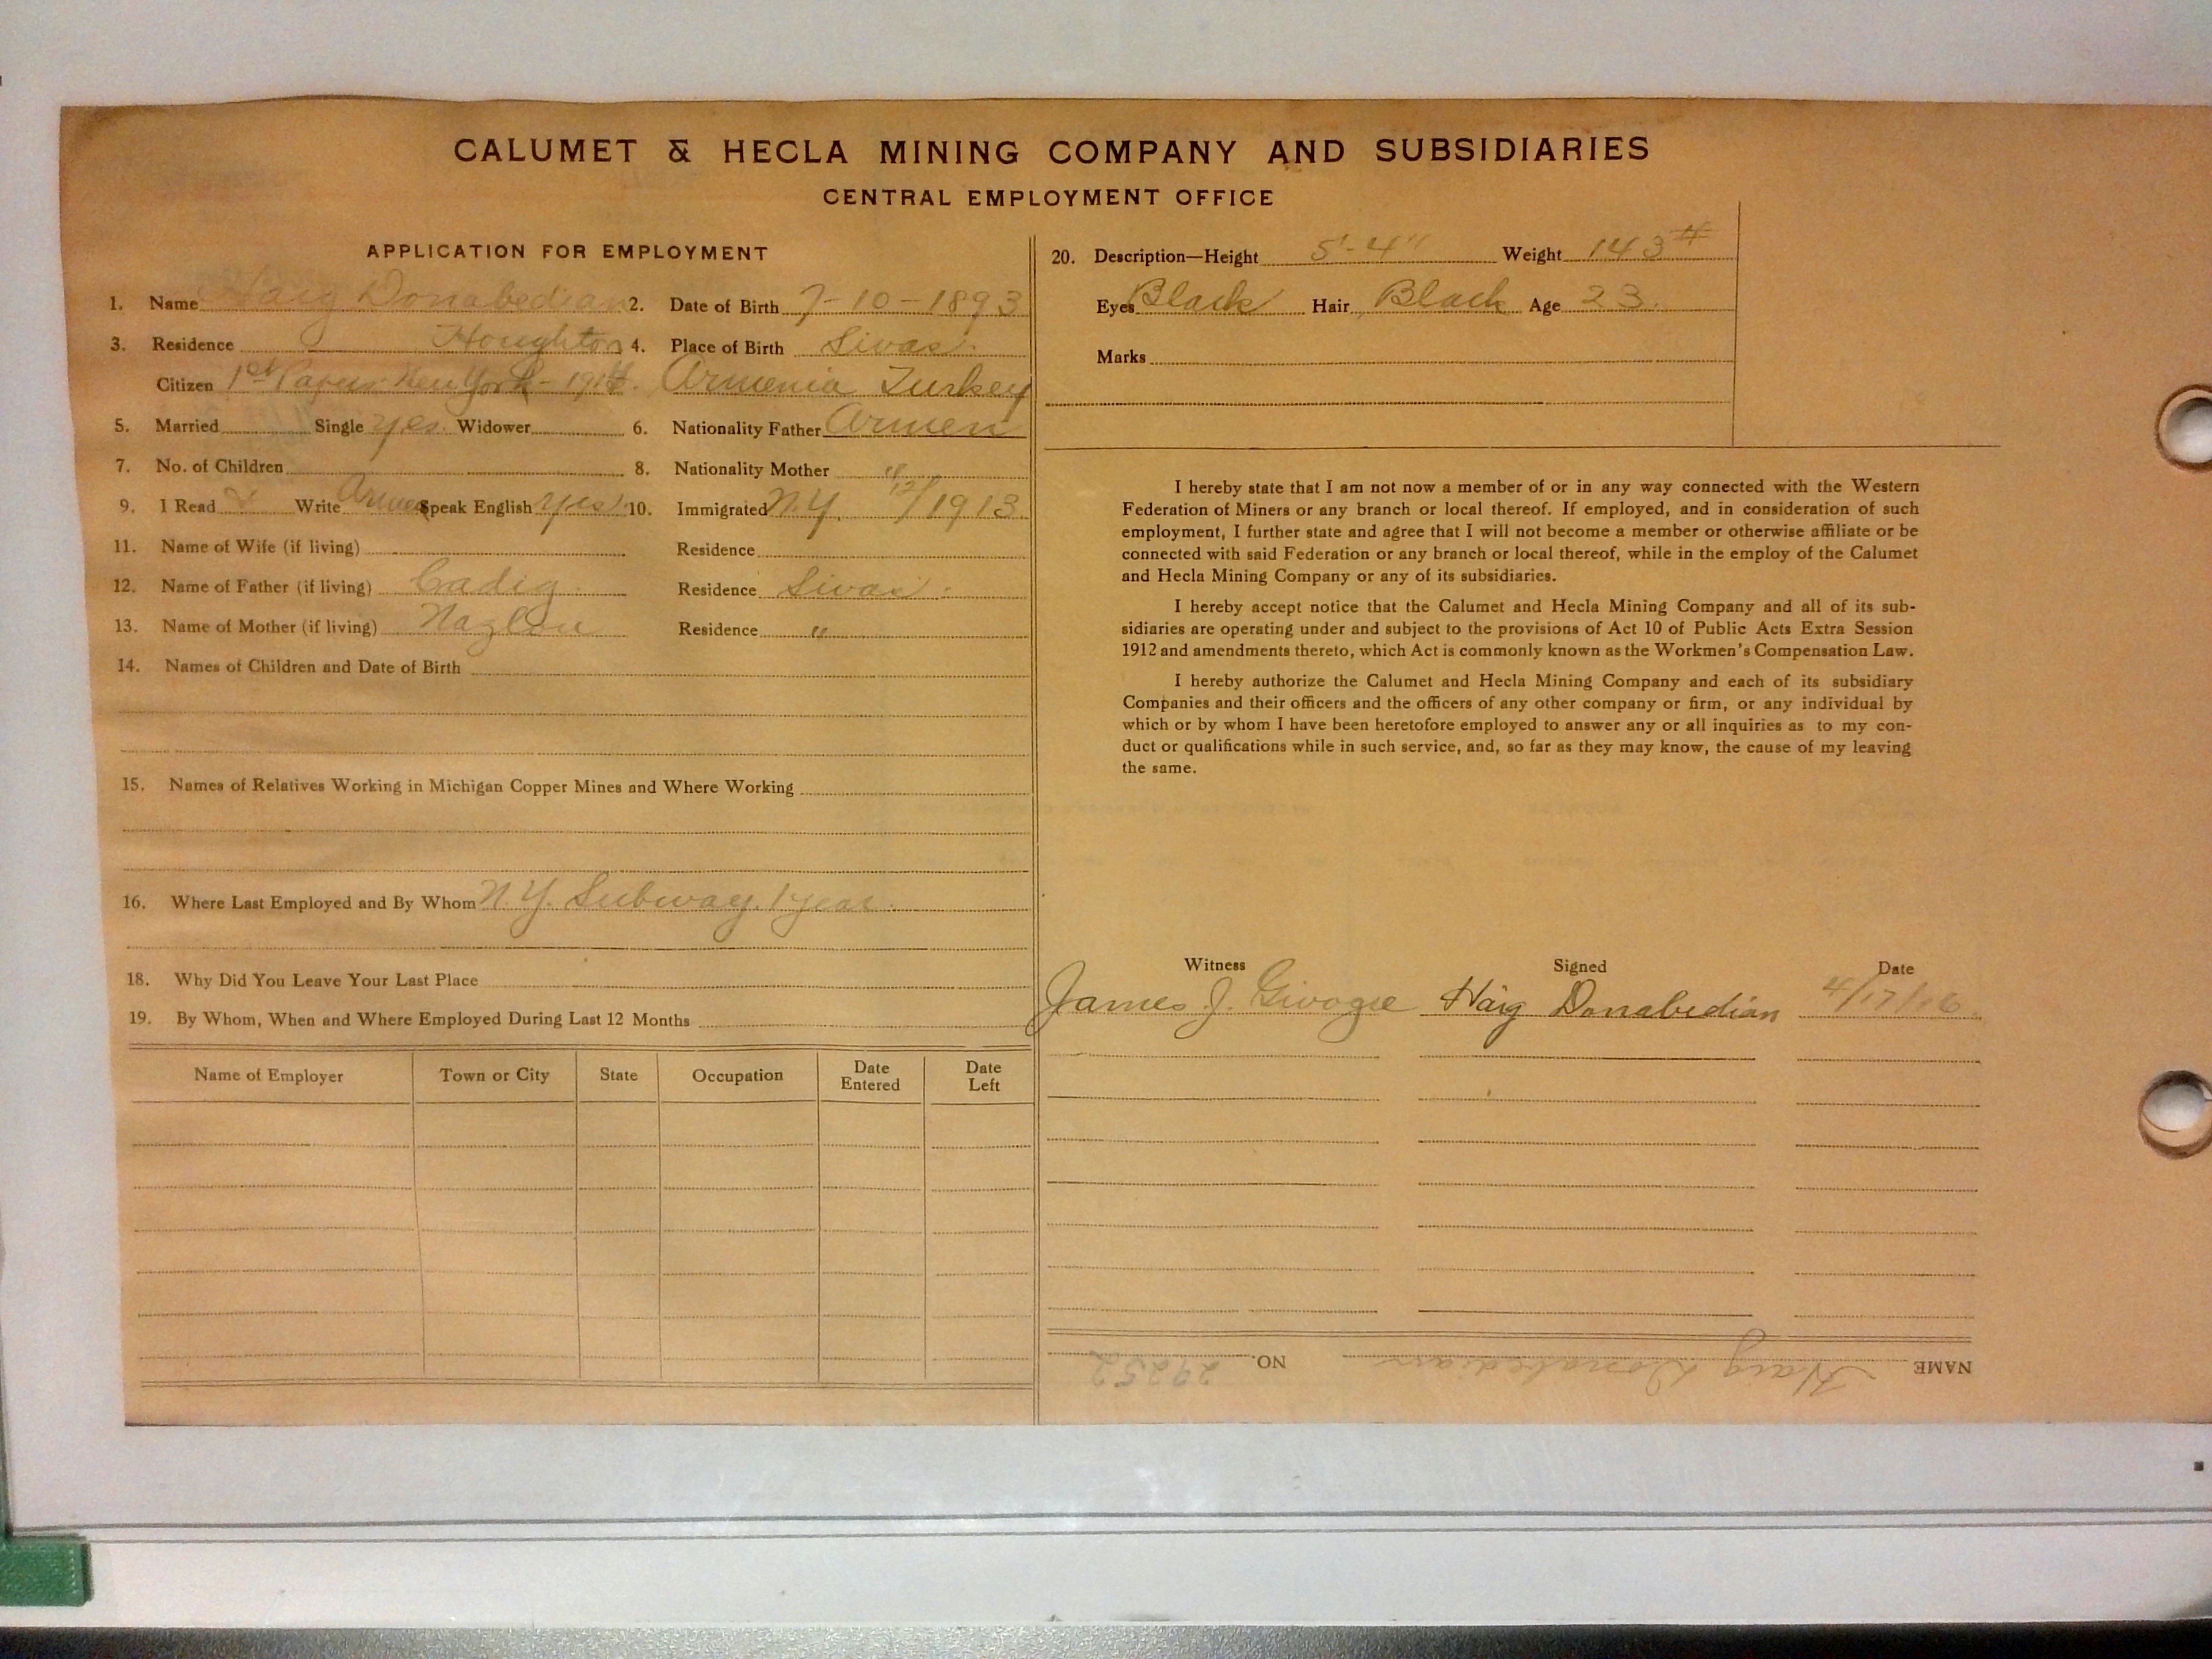 CALUMET & HECLA MINING COMPANY AND SUBSIDIARIES
CENTRAL EMPLOYMENT OFFICE
APPLICATION FOR EMPLOYMENT
1. Name Haig Donabedian 2. Date of Birth 7-10-1893
3. Residence Houghton 4. Place of Birth Sivas
Citizen 1st Papers New York - 1914. Armenia Turkey
5. Married Single yes. Widower 6. Nationality Father Armen
7. No. of Children 8. Nationality Mother "
9. I Read & Write Armen Speak English yes. 10. Immigrated N.Y. 12/1913.
11. Name of Wife (if living) Residence
12. Name of Father (if living) Cadig. Residence Sivas.
13. Name of Mother (if living) Nazlou Residence "
14. Names of Children and Date of Birth
15. Names of Relatives Working in Michigan Copper Mines and Where Working
16. Where Last Employed and By Whom N.Y. Subway. 1 year.
18. Why Did You Leave Your Last Place
19. By Whom, When and Where Employed During Last 12 Months
Name of Employer Town or City State Occupation Date Entered Date Left
20. Description—Height 5'-4" Weight 143#
Eyes Black Hair Black Age 23.
Marks
I hereby state that I am not now a member of or in any way connected with the Western
Federation of Miners or any branch or local thereof. If employed, and in consideration of such
employment, I further state and agree that I will not become a member or otherwise affiliate or be
connected with said Federation or any branch or local thereof, while in the employ of the Calumet
and Hecla Mining Company or any of its subsidiaries.
I hereby accept notice that the Calumet and Hecla Mining Company and all of its sub-
sidiaries are operating under and subject to the provisions of Act 10 of Public Acts Extra Session
1912 and amendments thereto, which Act is commonly known as the Workmen's Compensation Law.
I hereby authorize the Calumet and Hecla Mining Company and each of its subsidiary
Companies and their officers and the officers of any other company or firm, or any individual by
which or by whom I have been heretofore employed to answer any or all inquiries as to my con-
duct or qualifications while in such service, and, so far as they may know, the cause of my leaving
the same.
Witness Signed Date
James J. Haig Donabedian 4/17/16.
NAME Haig Donabedian NO. 29252